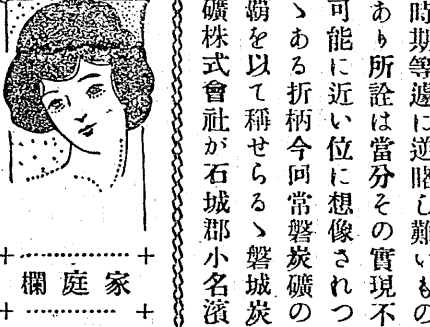 時期等遽に逆睹し難いもの
あり所詮は當分その實現不
可能に近い位に想像されつ
ゝある折柄今回常磐炭礦の
覇を以て稱せらるゝ磐城炭
礦株式會社が石城郡小名濱
家庭欄